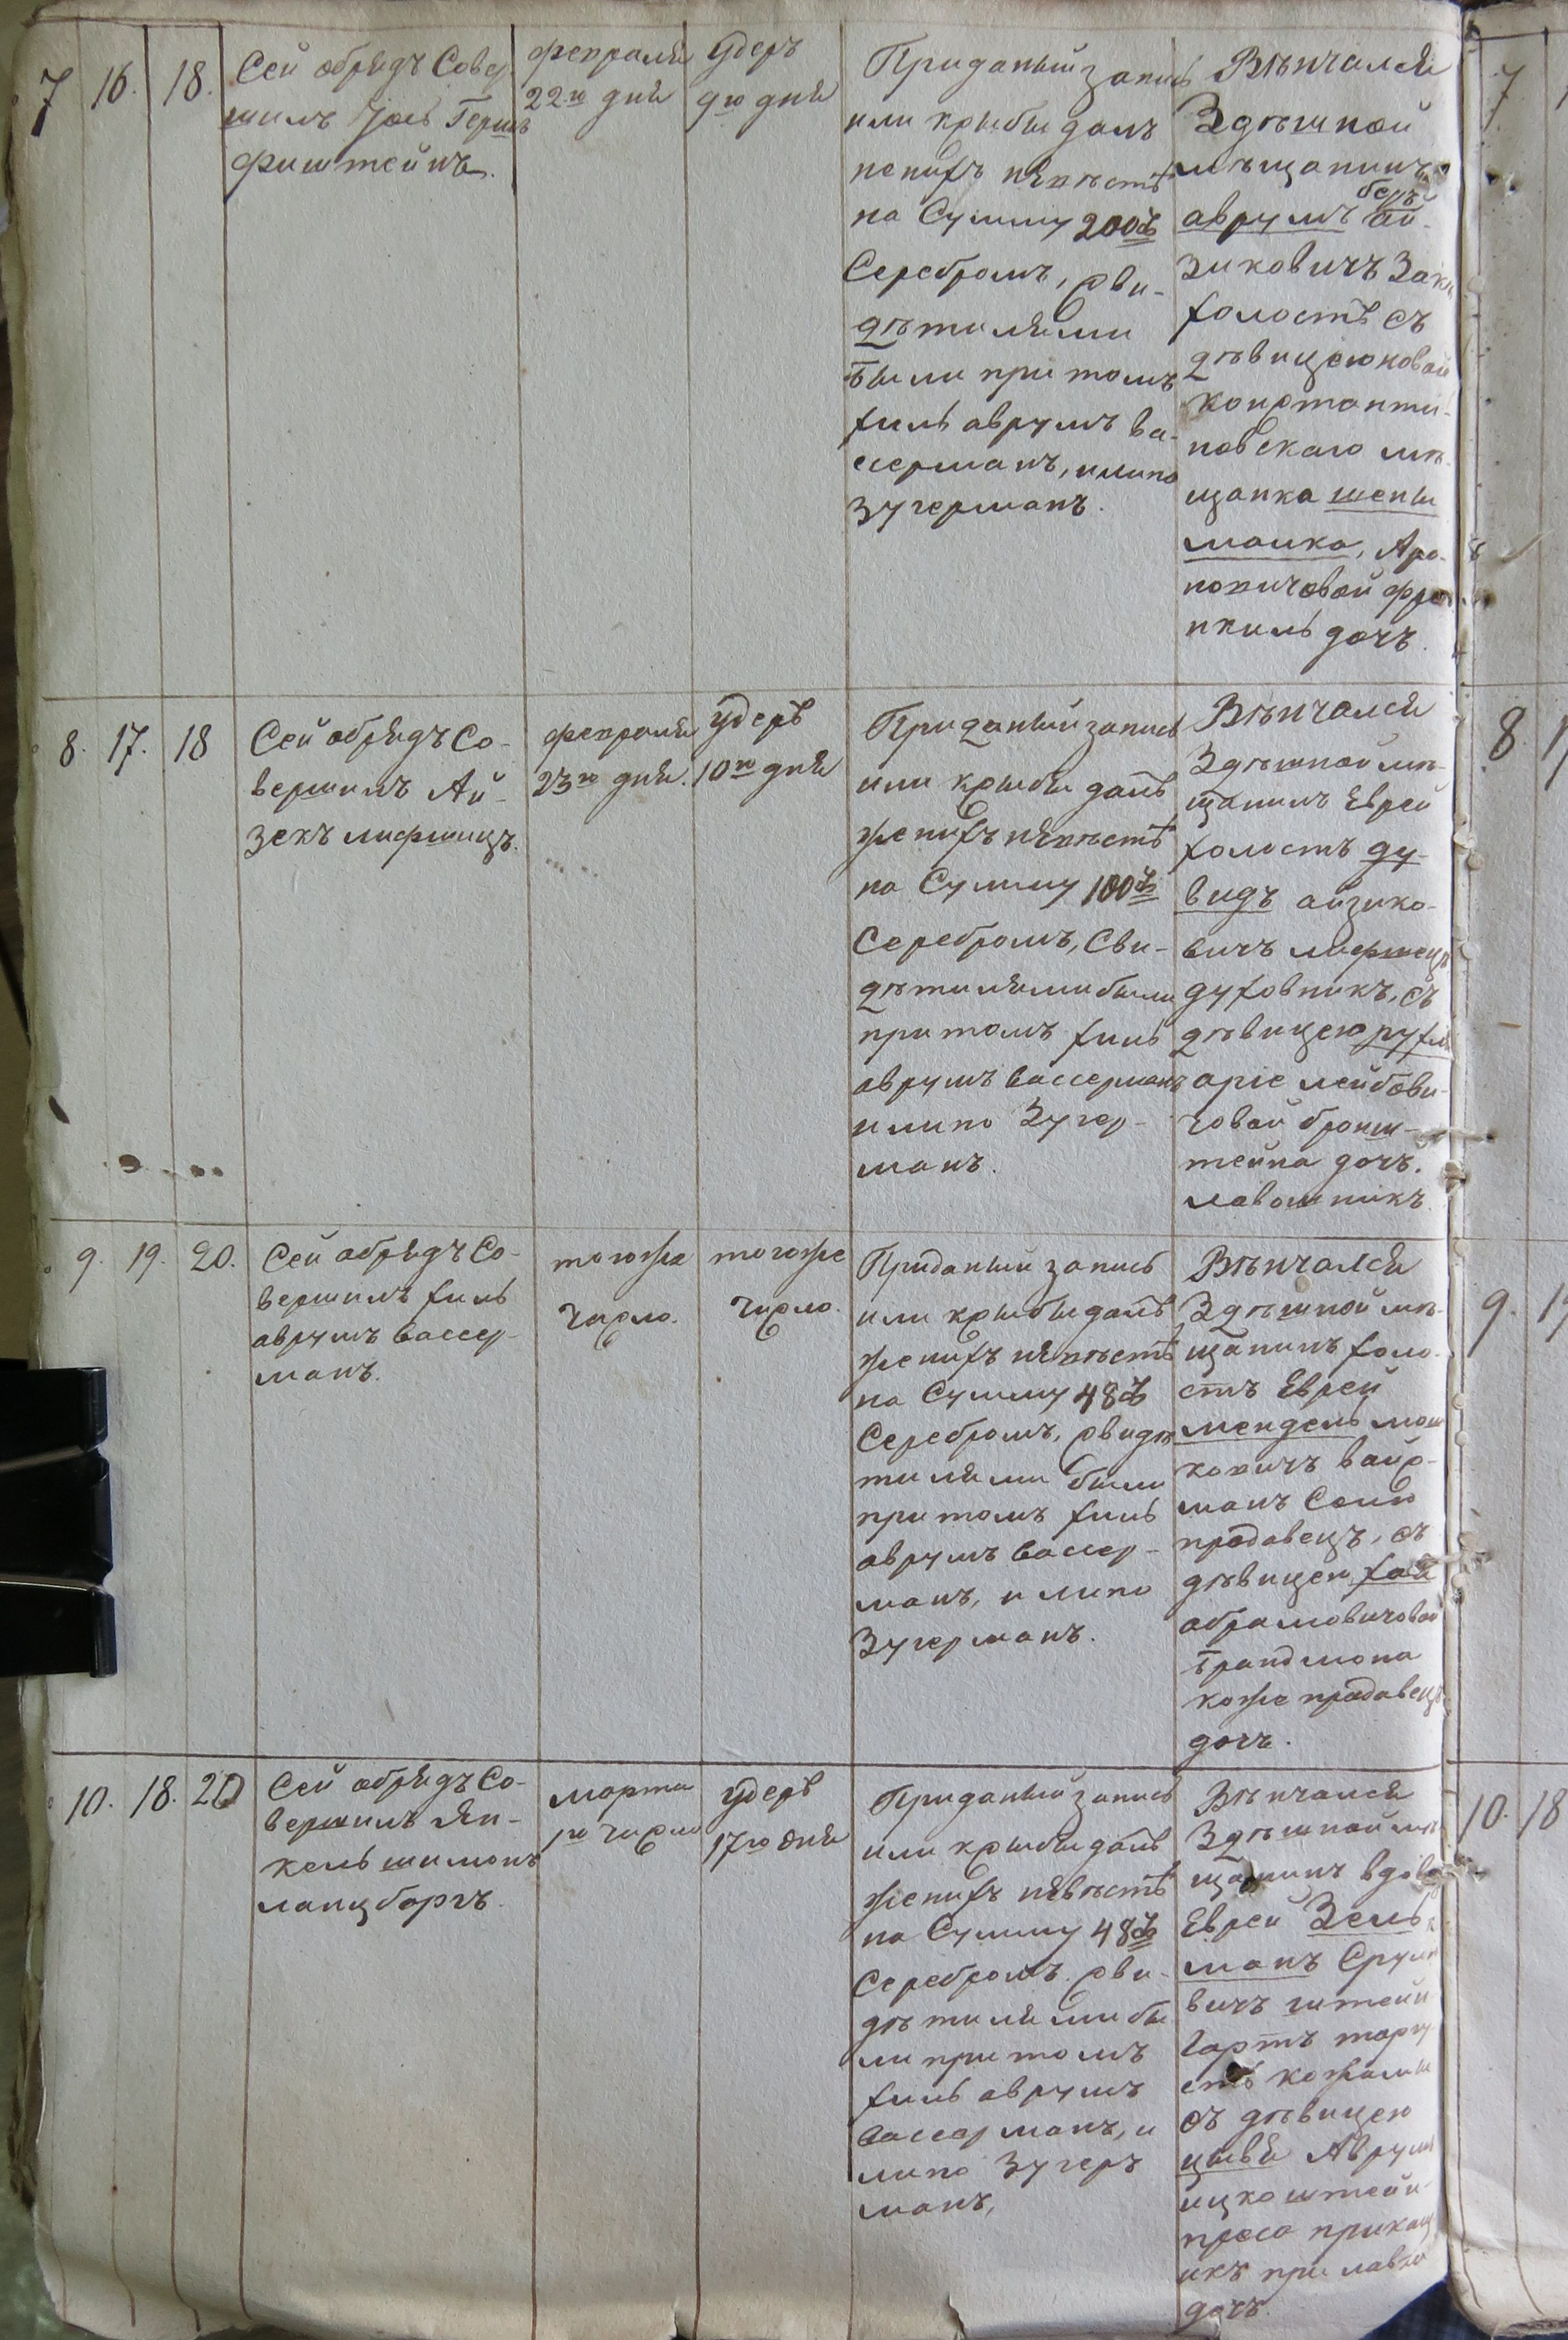 7 16. 18.
Сей обрядъ Совер
шилъ Јось Гершъ
фиштейнъ.
февраля
22го дня
Удеръ
9го дня
Приданый запись
или крыбы далъ
женихъ нявѣстѣ
на Сумму 200
Серебромъ, сви-
дѣтилями
были при томъ
хиль аврумъ ва-
серманъ, илипо
Зугерманъ.
Вѣнчался
Здѣшной
мѣщанинъ
аврумъ беръ ай-
зиковичъ Зак
холостъ съ
дѣвицею новой
константи-
новскаго мѣ-
щанка шены
малка, Аро-
новичовой фре
нкиль дочъ.
8. 17. 18
Сей обрядъ Со-
вершилъ Ай-
зекъ лифшицъ.
февраля
23го дня.
Удеръ
10го дня
Приданый запись
или крыбы далъ
женихъ нявѣстѣ
на Сумму 100
Серебромъ, Сви-
дѣтилями были
при томъ хиль
аврумъ вассерманъ
и липо Зугер-
манъ.
Вѣнчался
Здѣшной мѣ-
щанинъ Еврей
холостъ ду-
видъ айзико-
вичъ лифшецъ
духовникъ, съ
дѣвицею рухля
аріе лейбови-
човой бронш-
тейна дочъ.
лавошникъ.
9. 19. 20.
Сей обрядъ Со-
вершилъ хиль
аврумъ вассер-
манъ.
тогоже
число.
тогоже
число.
Приданый запись
или крыбы далъ
женихъ нявѣстѣ
на Сумму 48
Серебромъ, свидѣ
тилями были
при томъ хиль
аврумъ вассер-
манъ, и липо
Зугерманъ.
Вѣнчался
Здѣшной мѣ-
щанинъ холо-
стъ Еврей
мендель мош
ковичъ вайс-
манъ Солю
продавецъ, съ
дѣвицею хая
абрамовичовой
брандмона
коже продавецъ
дочъ.
10. 18. 20
Сей обрядъ Со-
вершилъ Ян-
кель шимонъ
ланцборгъ.
марта
1го число
Удеръ
17го дня
Приданый запись
или крыбы далъ
женихъ нявѣстѣ
на Сумму 48
Серебромъ. сви-
дѣтилями бы
ли при томъ
хиль аврумъ
вассерманъ, и
липо Зугеръ
манъ,
Вѣнчался
Здѣшной мѣ
щанинъ вдов
Еврей Зель
манъ Срул
вичъ штейн
гартъ торгу
етъ кожами
съ дѣвицею
цывя Аврум
ицко штейн
проса прикащ
икъ при лавк
дочъ.
7
8
9. 19
10. 18